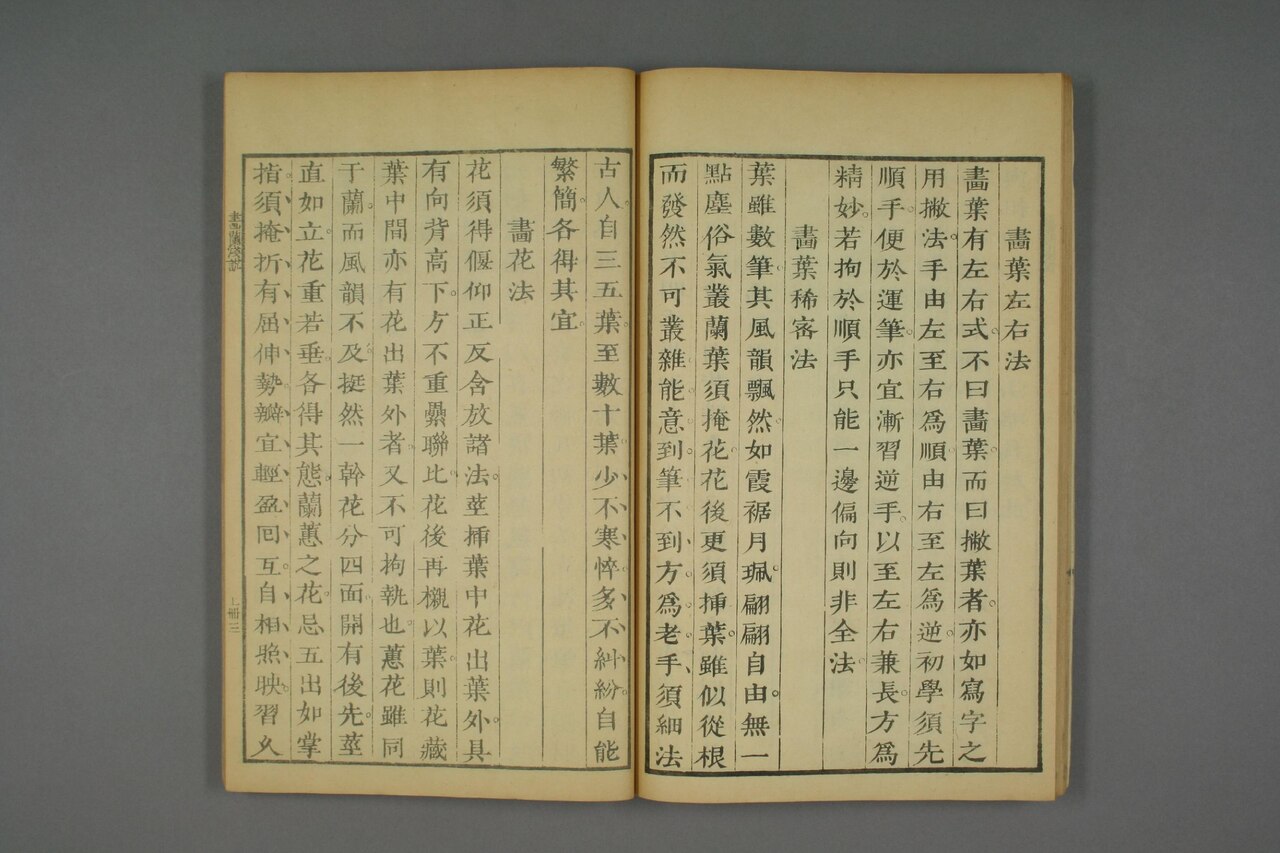 畫葉左右法
畫葉有左右式。不曰畫葉。而曰撇葉者。亦如寫字之
用撇法。手由左至右爲順。由右至左爲逆。初學須先
順手。便於運筆。亦宜漸習逆手。以至左右兼長。方爲
精妙。若拘於順手只能一邊偏向則非全法。
畫葉稀密法
葉雖數筆。其風韻飄然。如霞裾月珮。翩翩自由。無一
點塵俗氣。叢蘭葉須掩花。花後更須揷葉。雖似從根
而發。然不可叢雜。能意到。筆不到。方爲老手、須細法
古人。自三五葉。至數十葉。少不寒悴。多不糾紛。自能
繁簡。各得其宜。
畫花法
花須得偃仰正反含放諸法。莖揷葉中。花出葉外。具
有向背高下。方不重纍聯比。花後再櫬以葉。則花藏
葉中。間亦有花出葉外者。又不可拘執也。蕙花雖同
于蘭。而風韻不及。挺然一幹。花分四面。開有後先。莖
直如立。花重若垂。各得其態。蘭蕙之花。忌五出如掌
指。須掩折有屈伸勢。瓣宜輕盈回互。自相照映。習久
上冊三